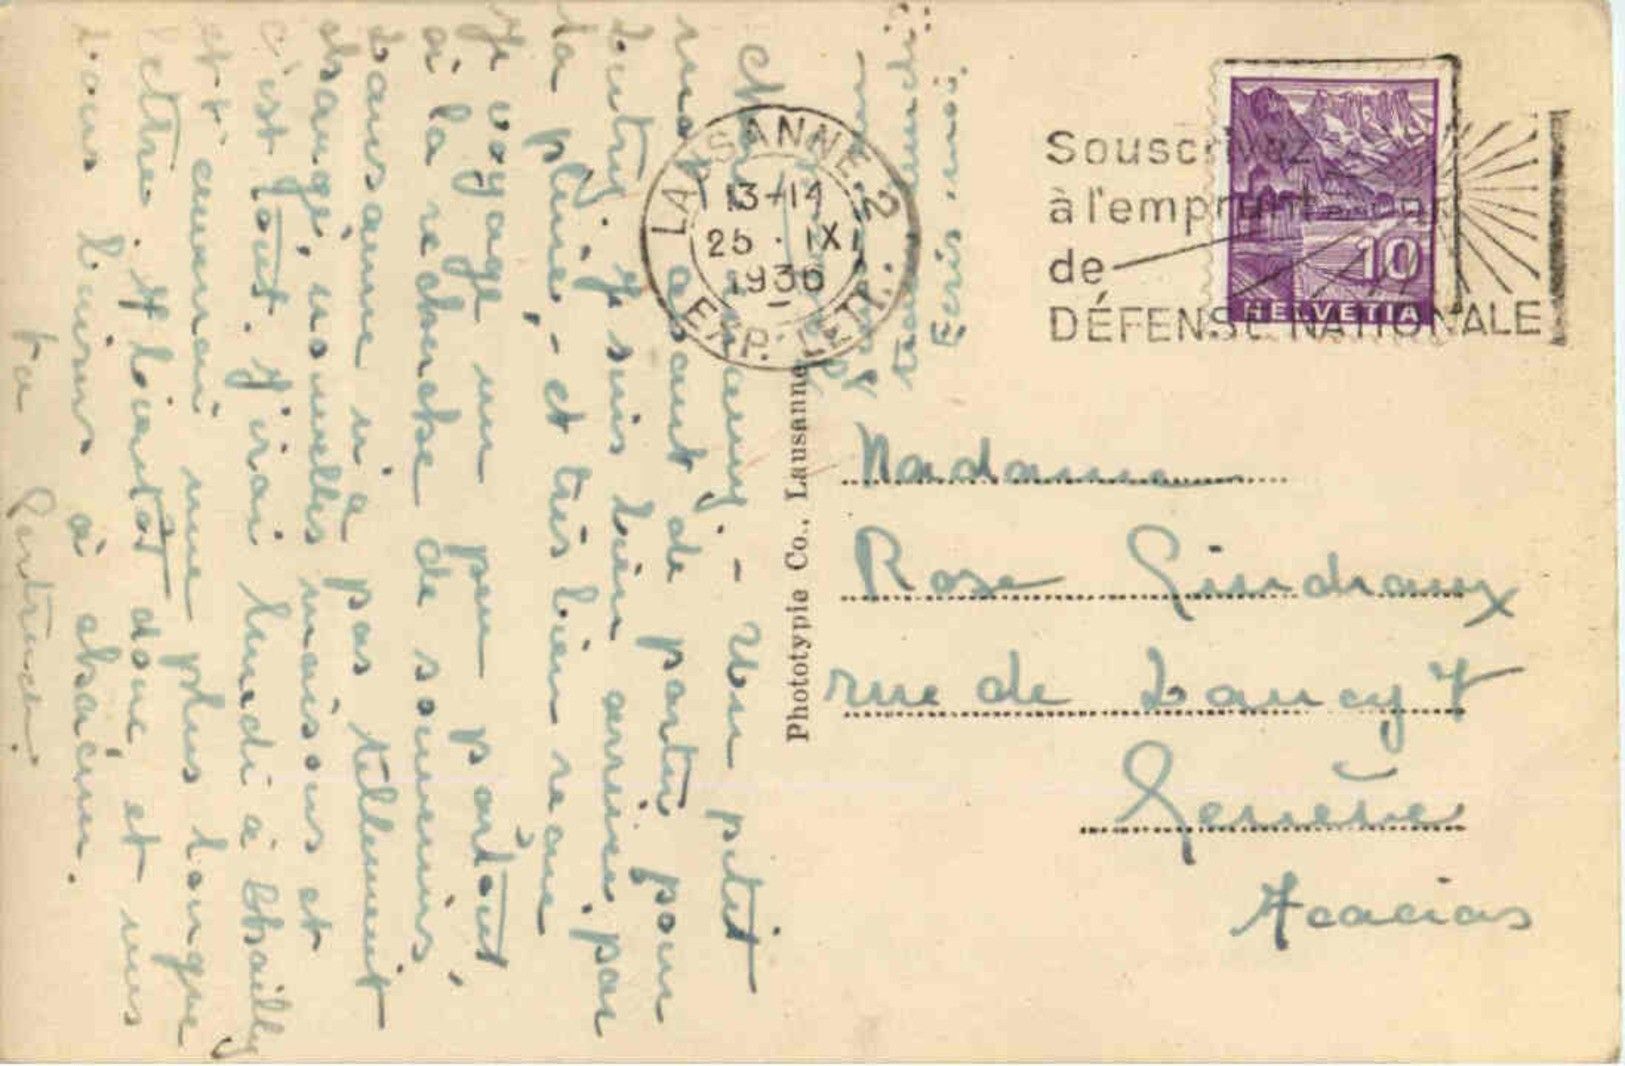 Chère Fanny, - Un petit
mot avant de partir pour
Lutry. Je suis bien arrivée par
la pluie, - et très bien reçue
Je voyage un peu partout,
à la recherche de souvenirs,
Lausanne n'a pas tellement
changé, nouvelles maisons et
c'est tout. J'irai lundi à Chailly
et t'enverrai une plus longue
lettre. A bientôt donc et mes
bons baisers à chacun.
Ta Gertrude.
Ecris-moi.
LAUSANNE 2
13-14
25.IX.
1936
EXP. LETT.
Souscrivez
à l'emprunt
de
DÉFENSE NATIONALE
10
HELVETIA
Phototypie Co., Lausanne
Madame
Rose Gindraux
rue de Lancy 7
Genève
Acacias